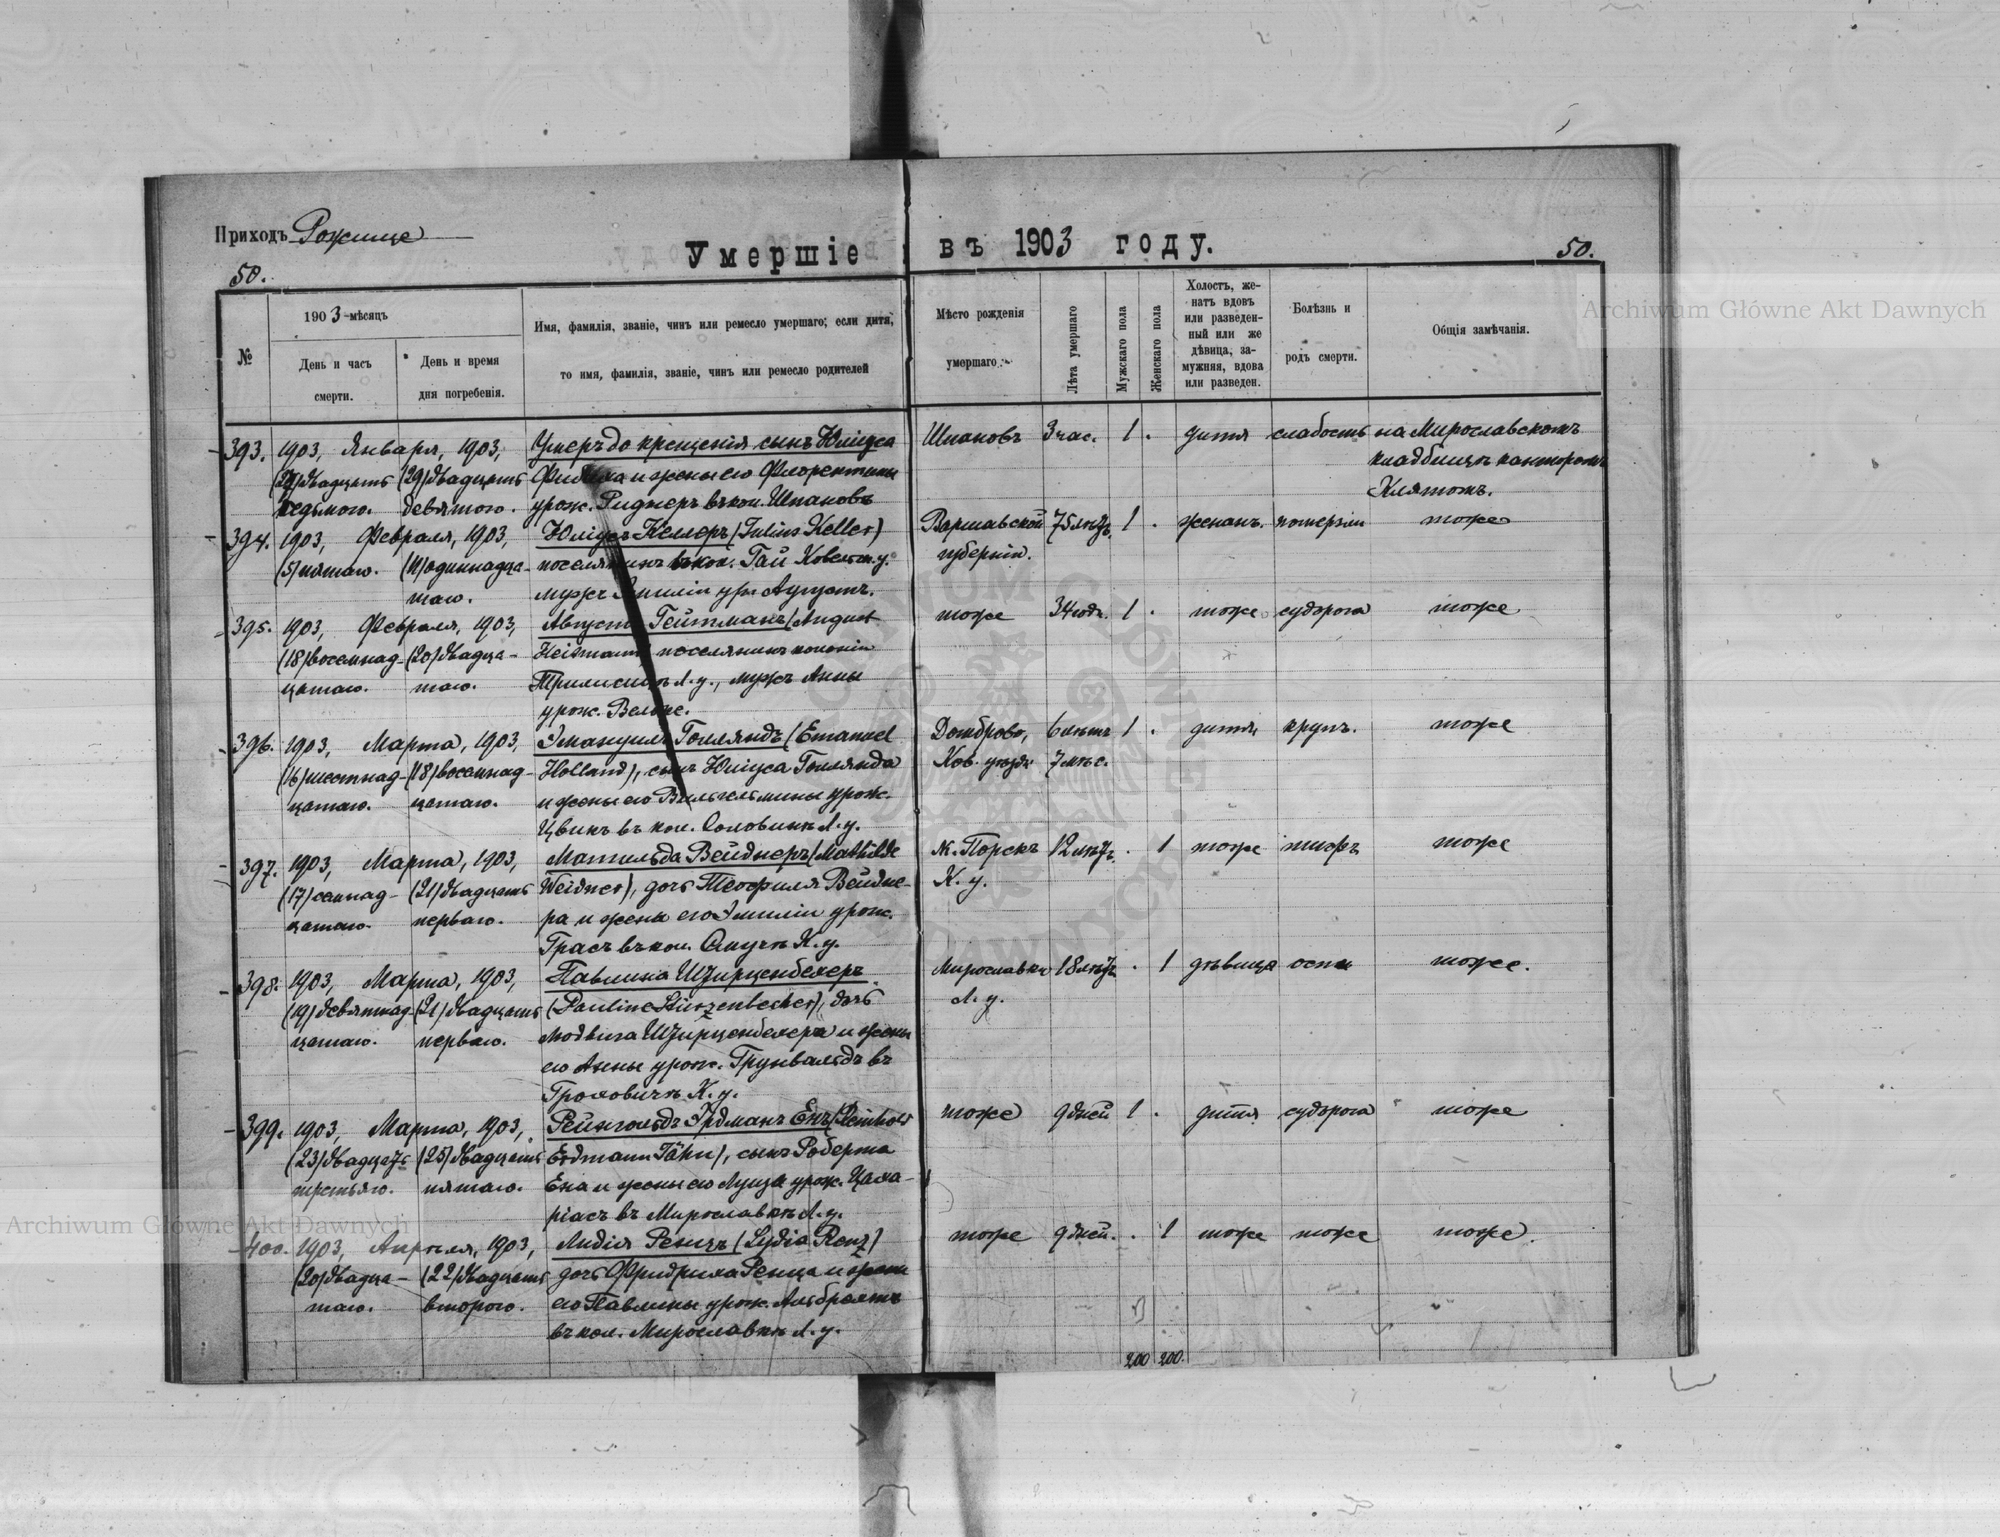 Приходъ Рожище
Умершіе въ 1903 году.
50.
50.
№
1903-мѣсяцъ
День и часъ
смерти.
День и время
дня погребенія.
Имя, фамилія, званіе, чинъ или ремесло умершаго; если дитя,
то имя, фамилія, званіе, чинъ или ремесло родителей
Мѣсто рожденія
умершаго
Лѣта умершаго
Мужскаго пола
Женскаго пола
Холостъ, же-
натъ вдовъ
или разведен-
ный или же
дѣвица, за-
мужняя, вдова
или разведен.
Болѣзнь и
родъ смерти.
Общія замѣчанія.
Archiwum Główne Akt Dawnych
393. 1903, Января, 1903, Умеръ до крещенія сынъ Юліуса Шпановъ 3 час. 1 . дитя слабость на Мирославскомъ
двадцать (29) двадцать и жены его Флорентины кладбищѣ канторомъ
седьмого. девятого. урож. въ кол. Шпановъ Клятомъ.
394. 1903, Февраля, 1903, Юліусъ Келлеръ (Julius Keller) Варшавской 75 лѣтъ 1 . женатъ. тоже
(5) пятаго. (11) одиннадца- поселянинъ въ кол. Гай Ковельск. у. губерніи.
таго. мужъ Эмиліи ур. Августъ.
395. 1903, Февраля, 1903, Августъ Гейтманъ (August тоже 34 года. 1 . тоже судорога тоже
(18) восемнад- (20) двадца- поселянинъ колоніи
цатаго. таго. Л. у., мужъ Анны
урож.
396. 1903, Марта, 1903, Эмануилъ Голляндъ (Emanuel Домброво, 6 лѣтъ 1 . дитя, крупъ. тоже
(16) шестнад- (18) восемнад- Holland), сынъ Юліуса Голлянда Ков. уѣзда 7 мѣс.
цатаго. цатаго. и жены его Вильгельмины урож.
Цвинъ въ кол. Л. у.
397. 1903, Марта, 1903, Матильда Вейднеръ (Mathilde м. Порскъ 12 лѣтъ. . 1 тоже тифъ тоже
(17) семнад- (21) двадцать Weidner), дочь Теофиля Вейдне- К. у.
цатаго. перваго. ра и жены его Эмиліи урож.
Грасъ въ кол. К. у.
398. 1903, Марта, 1903, Павлина Штирценбехеръ Мирославка 18 лѣтъ . 1 дѣвица оспа тоже.
(19) девятнад- (21) двадцать (Pauline Stürzenbecher), дочь Л. у.
цатаго. перваго. Людвига Штирценбехера и жены
его Анны урож. Грунвальдъ въ
К. у.
399. 1903, Марта, 1903, Рейнгольдъ Эрдманъ Енъ (Reinhold тоже 9 дней 1 . дитя судорога тоже
(23) двадцать (25) двадцать Erdmann Jähn), сынъ Роберта
третьяго. пятаго. Ена и жены его Луизы урож. Цаха-
ріасъ въ Мирославкѣ Л. у.
400. 1903, Апрѣля, 1903, Лидія Ренцъ (Lydia Renz) тоже 9 дней. . 1 тоже тоже тоже.
(20) двадца- (22) двадцать дочь Фридриха Ренца и жены
таго. второго. его Павлины урож. Альбрехтъ
въ кол. Мирославкѣ Л. у.
200 200.
Archiwum Główne Akt Dawnych